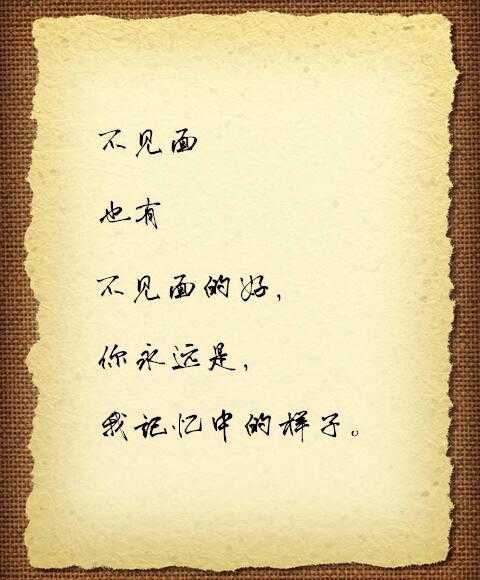 不见面
也有
不见面的好，
你永远是，
我记忆中的样子。